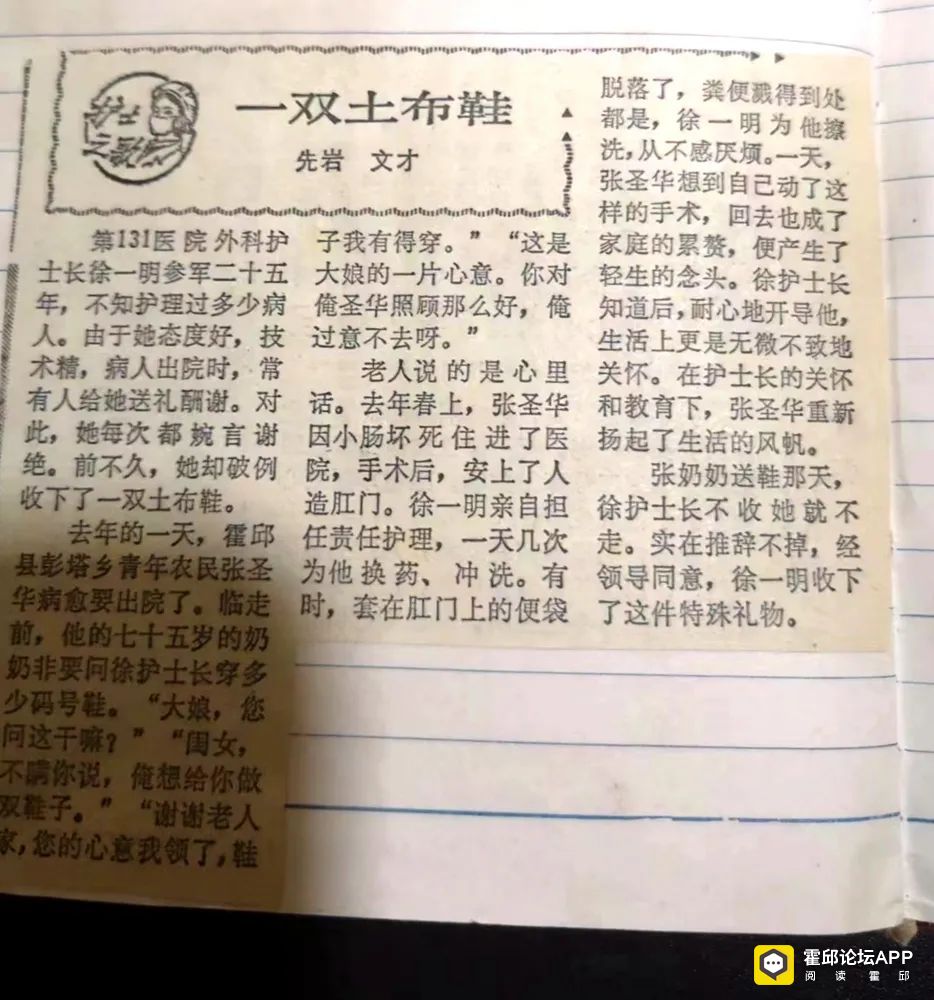 护士之歌
一双土布鞋
先岩 文才
第131医院外科护
士长徐一明参军二十五
年，不知护理过多少病
人。由于她态度好，技
术精，病人出院时，常
有人给她送礼酬谢。对
此，她每次都婉言谢
绝。前不久，她却破例
收下了一双土布鞋。
去年的一天，霍邱
县彭塔乡青年农民张圣
华病愈要出院了。临走
前，他的七十五岁的奶
奶非要问徐护士长穿多
少码号鞋。“大娘，您
问这干嘛？”“闺女，
不瞒你说，俺想给你做
双鞋子。”“谢谢老人
家，您的心意我领了，鞋
子我有得穿。”“这是
大娘的一片心意。你对
俺圣华照顾那么好，俺
过意不去呀。”
老人说的是心里
话。去年春上，张圣华
因小肠坏死住进了医
院，手术后，安上了人
造肛门。徐一明亲自担
任责任护理，一天几次
为他换药、冲洗。有
时，套在肛门上的便袋
脱落了，粪便溅得到处
都是，徐一明为他擦
洗，从不感厌烦。一天，
张圣华想到自己动了这
样的手术，回去也成了
家庭的累赘，便产生了
轻生的念头。徐护士长
知道后，耐心地开导他，
生活上更是无微不致地
关怀。在护士长的关怀
和教育下，张圣华重新
扬起了生活的风帆。
张奶奶送鞋那天，
徐护士长不收她就不
走。实在推辞不掉，经
领导同意，徐一明收下
了这件特殊礼物。
霍邱论坛APP
阅读霍邱